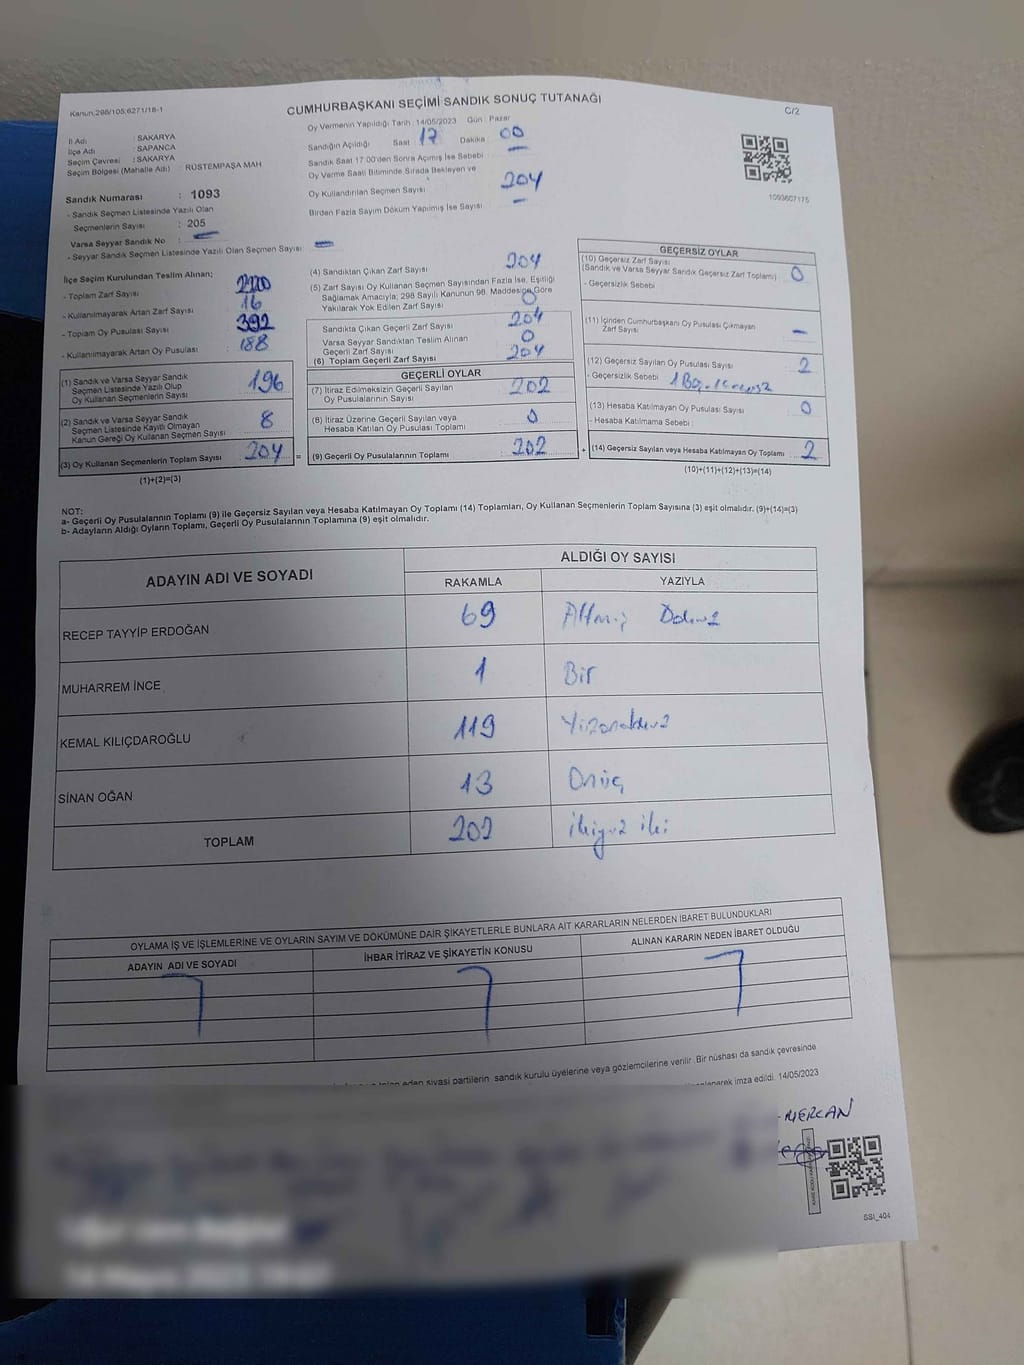 Kanun;298/105;6271/18-1
CUMHURBAŞKANI SEÇİMİ SANDIK SONUÇ TUTANAĞI
C/2
İl Adı : SAKARYA
İlçe Adı : SAPANCA
Seçim Çevresi : SAKARYA
Seçim Bölgesi (Mahalle Adı) : RÜSTEMPAŞA MAH
Sandık Numarası : 1093
- Sandık Seçmen Listesinde Yazılı Olan
Seçmenlerin Sayısı : 205
Varsa Seyyar Sandık No : —
- Seyyar Sandık Seçmen Listesinde Yazılı Olan Seçmen Sayısı: —
Oy Vermenin Yapıldığı Tarih : 14/05/2023 Gün : Pazar
Sandığın Açıldığı Saat : 17 Dakika : 00
Sandık Saat 17:00'den Sonra Açılmış İse Sebebi : —
Oy Verme Saati Bitiminde Sırada Bekleyen ve
Oy Kullandırılan Seçmen Sayısı : 204
Birden Fazla Sayım Döküm Yapılmış İse Sayısı : —
1093607175
İlçe Seçim Kurulundan Teslim Alınan;
- Toplam Zarf Sayısı : 220
- Kullanılmayarak Artan Zarf Sayısı : 16
- Toplam Oy Pusulası Sayısı : 392
- Kullanılmayarak Artan Oy Pusulası : 188
(1) Sandık ve Varsa Seyyar Sandık
Seçmen Listesinde Yazılı Olup
Oy Kullanan Seçmenlerin Sayısı : 196
(2) Sandık ve Varsa Seyyar Sandık
Seçmen Listesinde Kayıtlı Olmayan
Kanun Gereği Oy Kullanan Seçmen Sayısı : 8
(3) Oy Kullanan Seçmenlerin Toplam Sayısı : 204 =
(1)+(2)=(3)
(4) Sandıktan Çıkan Zarf Sayısı : 204
(5) Zarf Sayısı Oy Kullanan Seçmen Sayısından Fazla İse, Eşitliği
Sağlamak Amacıyla; 298 Sayılı Kanunun 98. Maddesine Göre
Yakılarak Yok Edilen Zarf Sayısı : 0
Sandıkta Çıkan Geçerli Zarf Sayısı : 204
Varsa Seyyar Sandıktan Teslim Alınan
Geçerli Zarf Sayısı : 0
(6) Toplam Geçerli Zarf Sayısı : 204
GEÇERLİ OYLAR
(7) İtiraz Edilmeksizin Geçerli Sayılan
Oy Pusulası Sayısı : 202
(8) İtiraz Üzerine Geçerli Sayılan veya
Hesaba Katılan Oy Pusulası Toplamı : 0
(9) Geçerli Oy Pusulalarının Toplamı : 202 +
GEÇERSİZ OYLAR
(10) Geçersiz Zarf Sayısı
(Sandık ve Varsa Seyyar Sandık Geçersiz Zarf Toplamı) : 0
- Geçersizlik Sebebi :
(11) İçinden Cumhurbaşkanı Oy Pusulası Çıkmayan
Zarf Sayısı : —
(12) Geçersiz Sayılan Oy Pusulası Sayısı : 2
- Geçersizlik Sebebi :
(13) Hesaba Katılmayan Oy Pusulası Sayısı : 0
- Hesaba Katılmama Sebebi :
(14) Geçersiz Sayılan veya Hesaba Katılmayan Oy Toplamı : 2
(10)+(11)+(12)+(13)=(14)
NOT:
a- Geçerli Oy Pusulalarının Toplamı (9) ile Geçersiz Sayılan veya Hesaba Katılmayan Oy Toplamı (14) Toplamları, Oy Kullanan Seçmenlerin Toplam Sayısına (3) eşit olmalıdır. (9)+(14)=(3)
b- Adayların Aldığı Oyların Toplamı, Geçerli Oy Pusulalarının Toplamına (9) eşit olmalıdır.
ADAYIN ADI VE SOYADI ALDIĞI OY SAYISI
RAKAMLA YAZIYLA
RECEP TAYYİP ERDOĞAN 69 Altmış Dokuz
MUHARREM İNCE 1 Bir
KEMAL KILIÇDAROĞLU 119 Yüzondokuz
SİNAN OĞAN 13 Onüç
TOPLAM 202 ikiyüz iki
OYLAMA İŞ VE İŞLEMLERİNE VE OYLARIN SAYIM VE DÖKÜMÜNE DAİR ŞİKAYETLERLE BUNLARA AİT KARARLARIN NELERDEN İBARET BULUNDUKLARI
ADAYIN ADI VE SOYADI İHBAR İTİRAZ VE ŞİKAYETİN KONUSU ALINAN KARARIN NEDEN İBARET OLDUĞU
eden siyasi partilerin sandık kurulu üyelerine veya gözlemcilerine verilir. Bir nüshası da sandık çevresinde
imza edildi. 14/05/2023
MERCAN
SSI_404